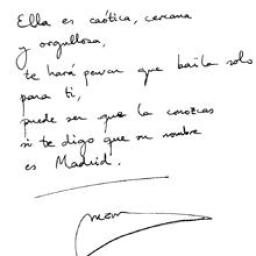 Ella es caótica, cercana
y orgullosa,
te hará pensar que baila solo
para ti,
puede ser que la conozcas
si te digo que su nombre
es Madrid.